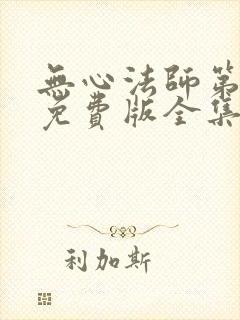 無心法師第
免費版全集
利加斯